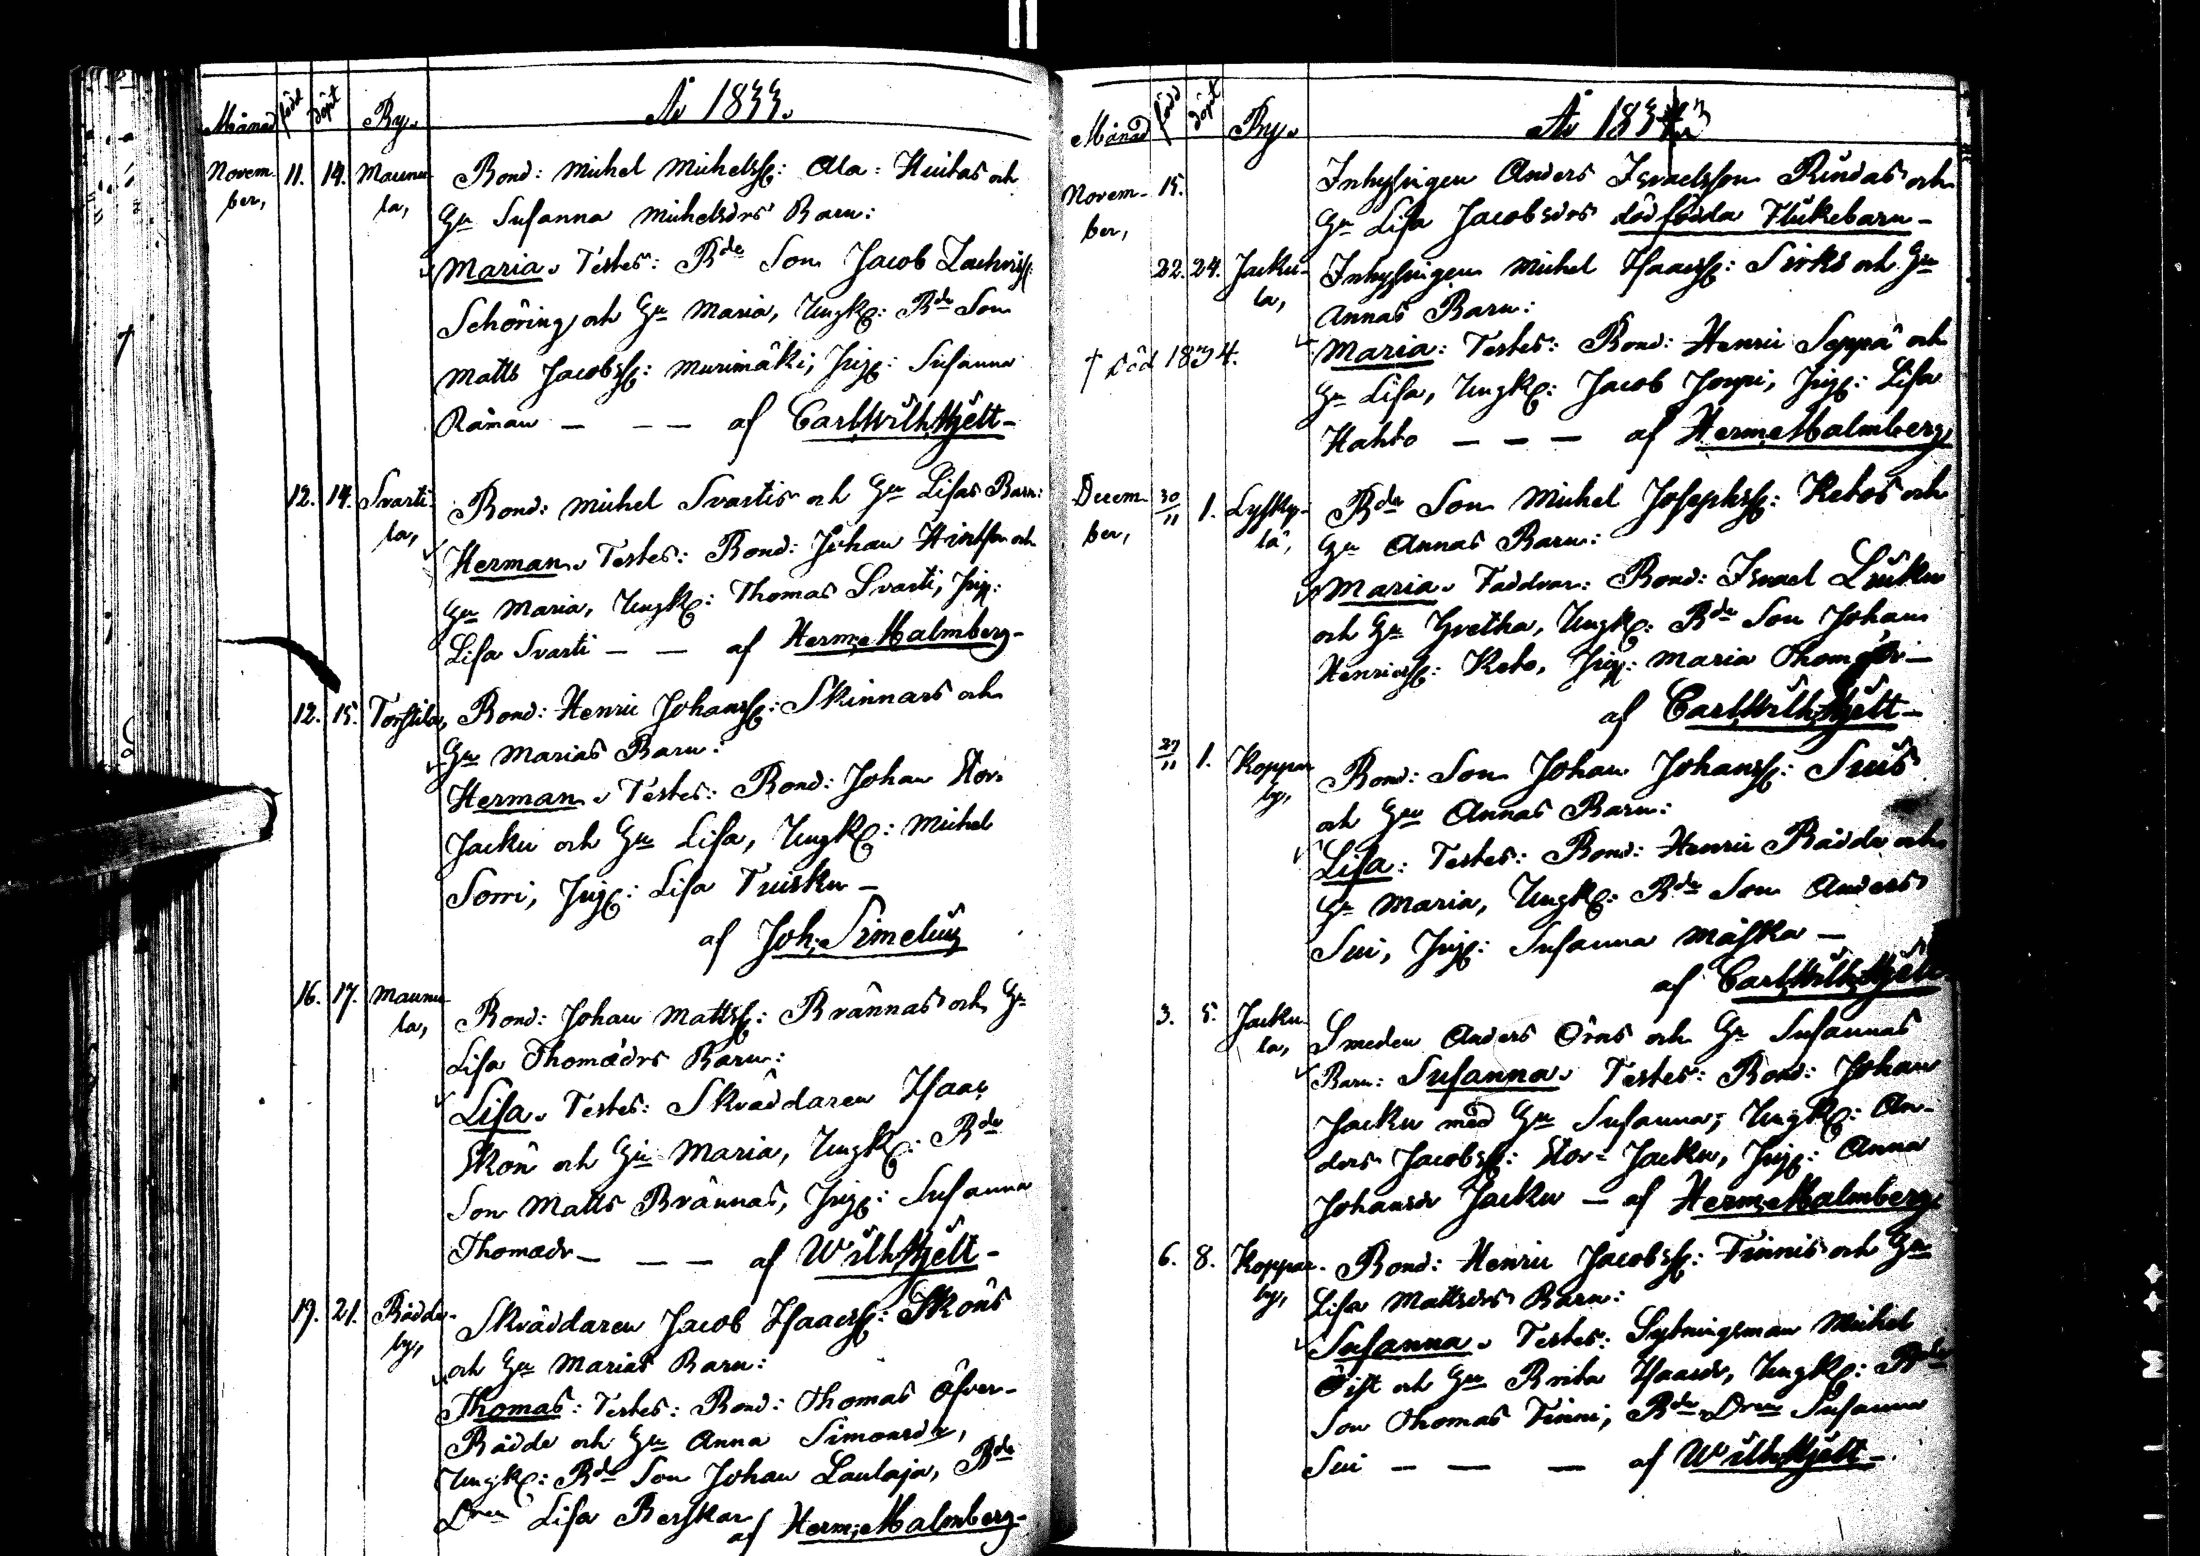 År 1833.
Månad född döpt By.
Novem- 11. 14. Maunu- Bond: Michel Michelss: Ala: Huitas och
ber, la, Hu Susanna Michelsdrs Barn:
Maria. Testes: Bde Son Jacob Zachriss:
Schöring och Hu Maria, Ungk: Bde Son
Matts Jacobss: Murimäki, Pig: Susanna
Raman — — — af Carl Wilh. Hjelt —
12. 14. Svarti- Bond: Michel Svartis och Hu Lisas Barn:
la, Herman. Testes: Bond: Johan och
Hu Maria, Ungk: Thomas Svarti, Pig:
Lisa Svarti — — af Herm: Malmberg —
12. 15. Torstila, Bond: Henric Johanss: Skinnars och
Hu Marias Barn:
Herman. Testes: Bond: Johan Stor-
Jacku och Hu Lisa, Ungk: Michel
Sorri, Pig: Lisa Truisku —
af Joh: Simelius
16. 17. Maunu- Bond: Johan Mattss: Brännas och Hu
la, Lisa Thomædrs Barn:
Lisa. Testes: Skräddaren Isaac
Skön och Hu Maria, Ungk: Bde
Son Matts Brännas, Pig: Susanna
Thomædr — — — af Wilh. Hjelt —
19. 21. Rädde- Skräddaren Jacob Isaacss: Sköns
by, och Hu Marias Barn:
Thomas: Testes: Bond: Thomas Öfver-
Rädde och Hu Anna Simonsdr,
Ungk: Bde Son Johan Laulaja, Bde
Dren Lisa Berskar af Herm: Malmberg —
År 1833
Månad född döpt By.
Novem- 15. Inhysingen Anders Israelsson Rindas och
ber, Hu Lisa Jacobsdrs dödfödda Flickebarn —
22. 24. Jacku- Inhysingen Michel Isaacss: Sirks och Hu
la, Annas Barn:
† död 1834. Maria: Testes: Bond: Henric Seppä och
Hu Lisa, Ungk: Jacob Joupi, Pig: Lisa
Hahto — — — af Herm: Malmberg
Decem- 30/11 1. Lyssky- Bde Son Michel Josephss: Ketos och
ber, lä, Hu Annas Barn:
Maria. Faddrar: Bond: Israel Liuku
och Hu Gretha, Ungk: Bde Son Johan
Henricss: Keto, Pig: Maria Thomædr —
af Carl Wilh. Hjelt —
27/11 1. Koppar- Bond: Son Johan Johanss: Suis
by, och Hu Annas Barn:
Lisa: Testes: Bond: Henric Rädde och
Hu Maria, Ungk: Bde Son Anders
Sui, Pig: Susanna Mäska —
af Carl Wilh. Hjelt
3. 5. Jacku- Smeden Anders Öras och Hu Susannas
la, Barn: Susanna. Testes: Bond: Johan
Jacku med Hu Susanna, Ungk: An-
ders Jacobss: Stor-Jacku, Pig: Anna
Johansdr Jacku — af Herm: Malmberg
6. 8. Koppar- Bond: Henric Jacobss: Finnis och Hu
by, Lisa Mattsdrs Barn:
Susanna. Testes: Sytningsman Michel
Öist och Hu Brita Isaacdr, Ungk: Bde
Son Thomas Finni, Bde Dren Susanna
Sui — — — af Wilh. Hjelt —